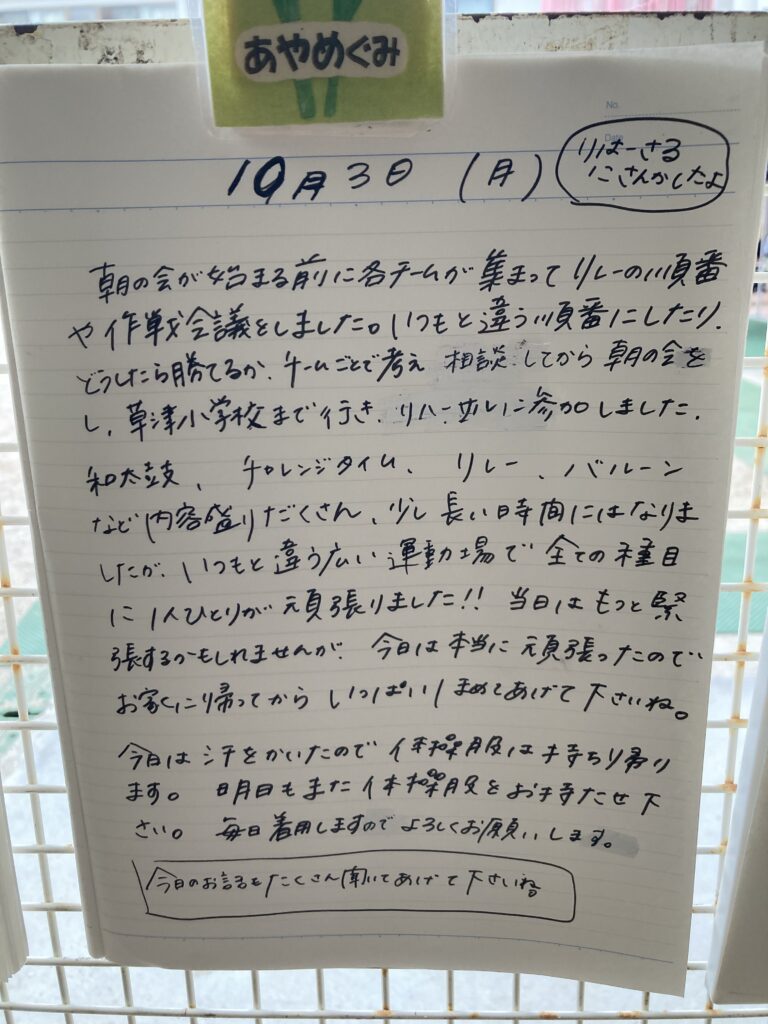 あやめぐみ
No.
Date
10月3日(月)
りはーさる
にさんかしたよ
朝の会が始まる前に各チームが集まってリレーの順番
や作戦会議をしました。いつもと違う順番にしたり、
どうしたら勝てるか、チームごとで考え相談してから朝の会を
し、草津小学校まで行き、リハーサルに参加しました。
和太鼓、チャレンジタイム、リレー、バルーン
など内容盛りだくさん、少し長い時間にはなりま
したが、いつもと違う広い運動場で全ての種目
に1人ひとりが頑張りました!!当日はもっと緊
張するかもしれませんが、今日は本当に頑張ったので
お家に帰ってからいっぱいほめてあげて下さいね。
今日は汗をかいたので体操服は持ち帰り
ます。明日もまた体操服をお持たせ下
さい。毎日着用しますのでよろしくお願いします。
今日のお話をたくさん聞いてあげて下さいね